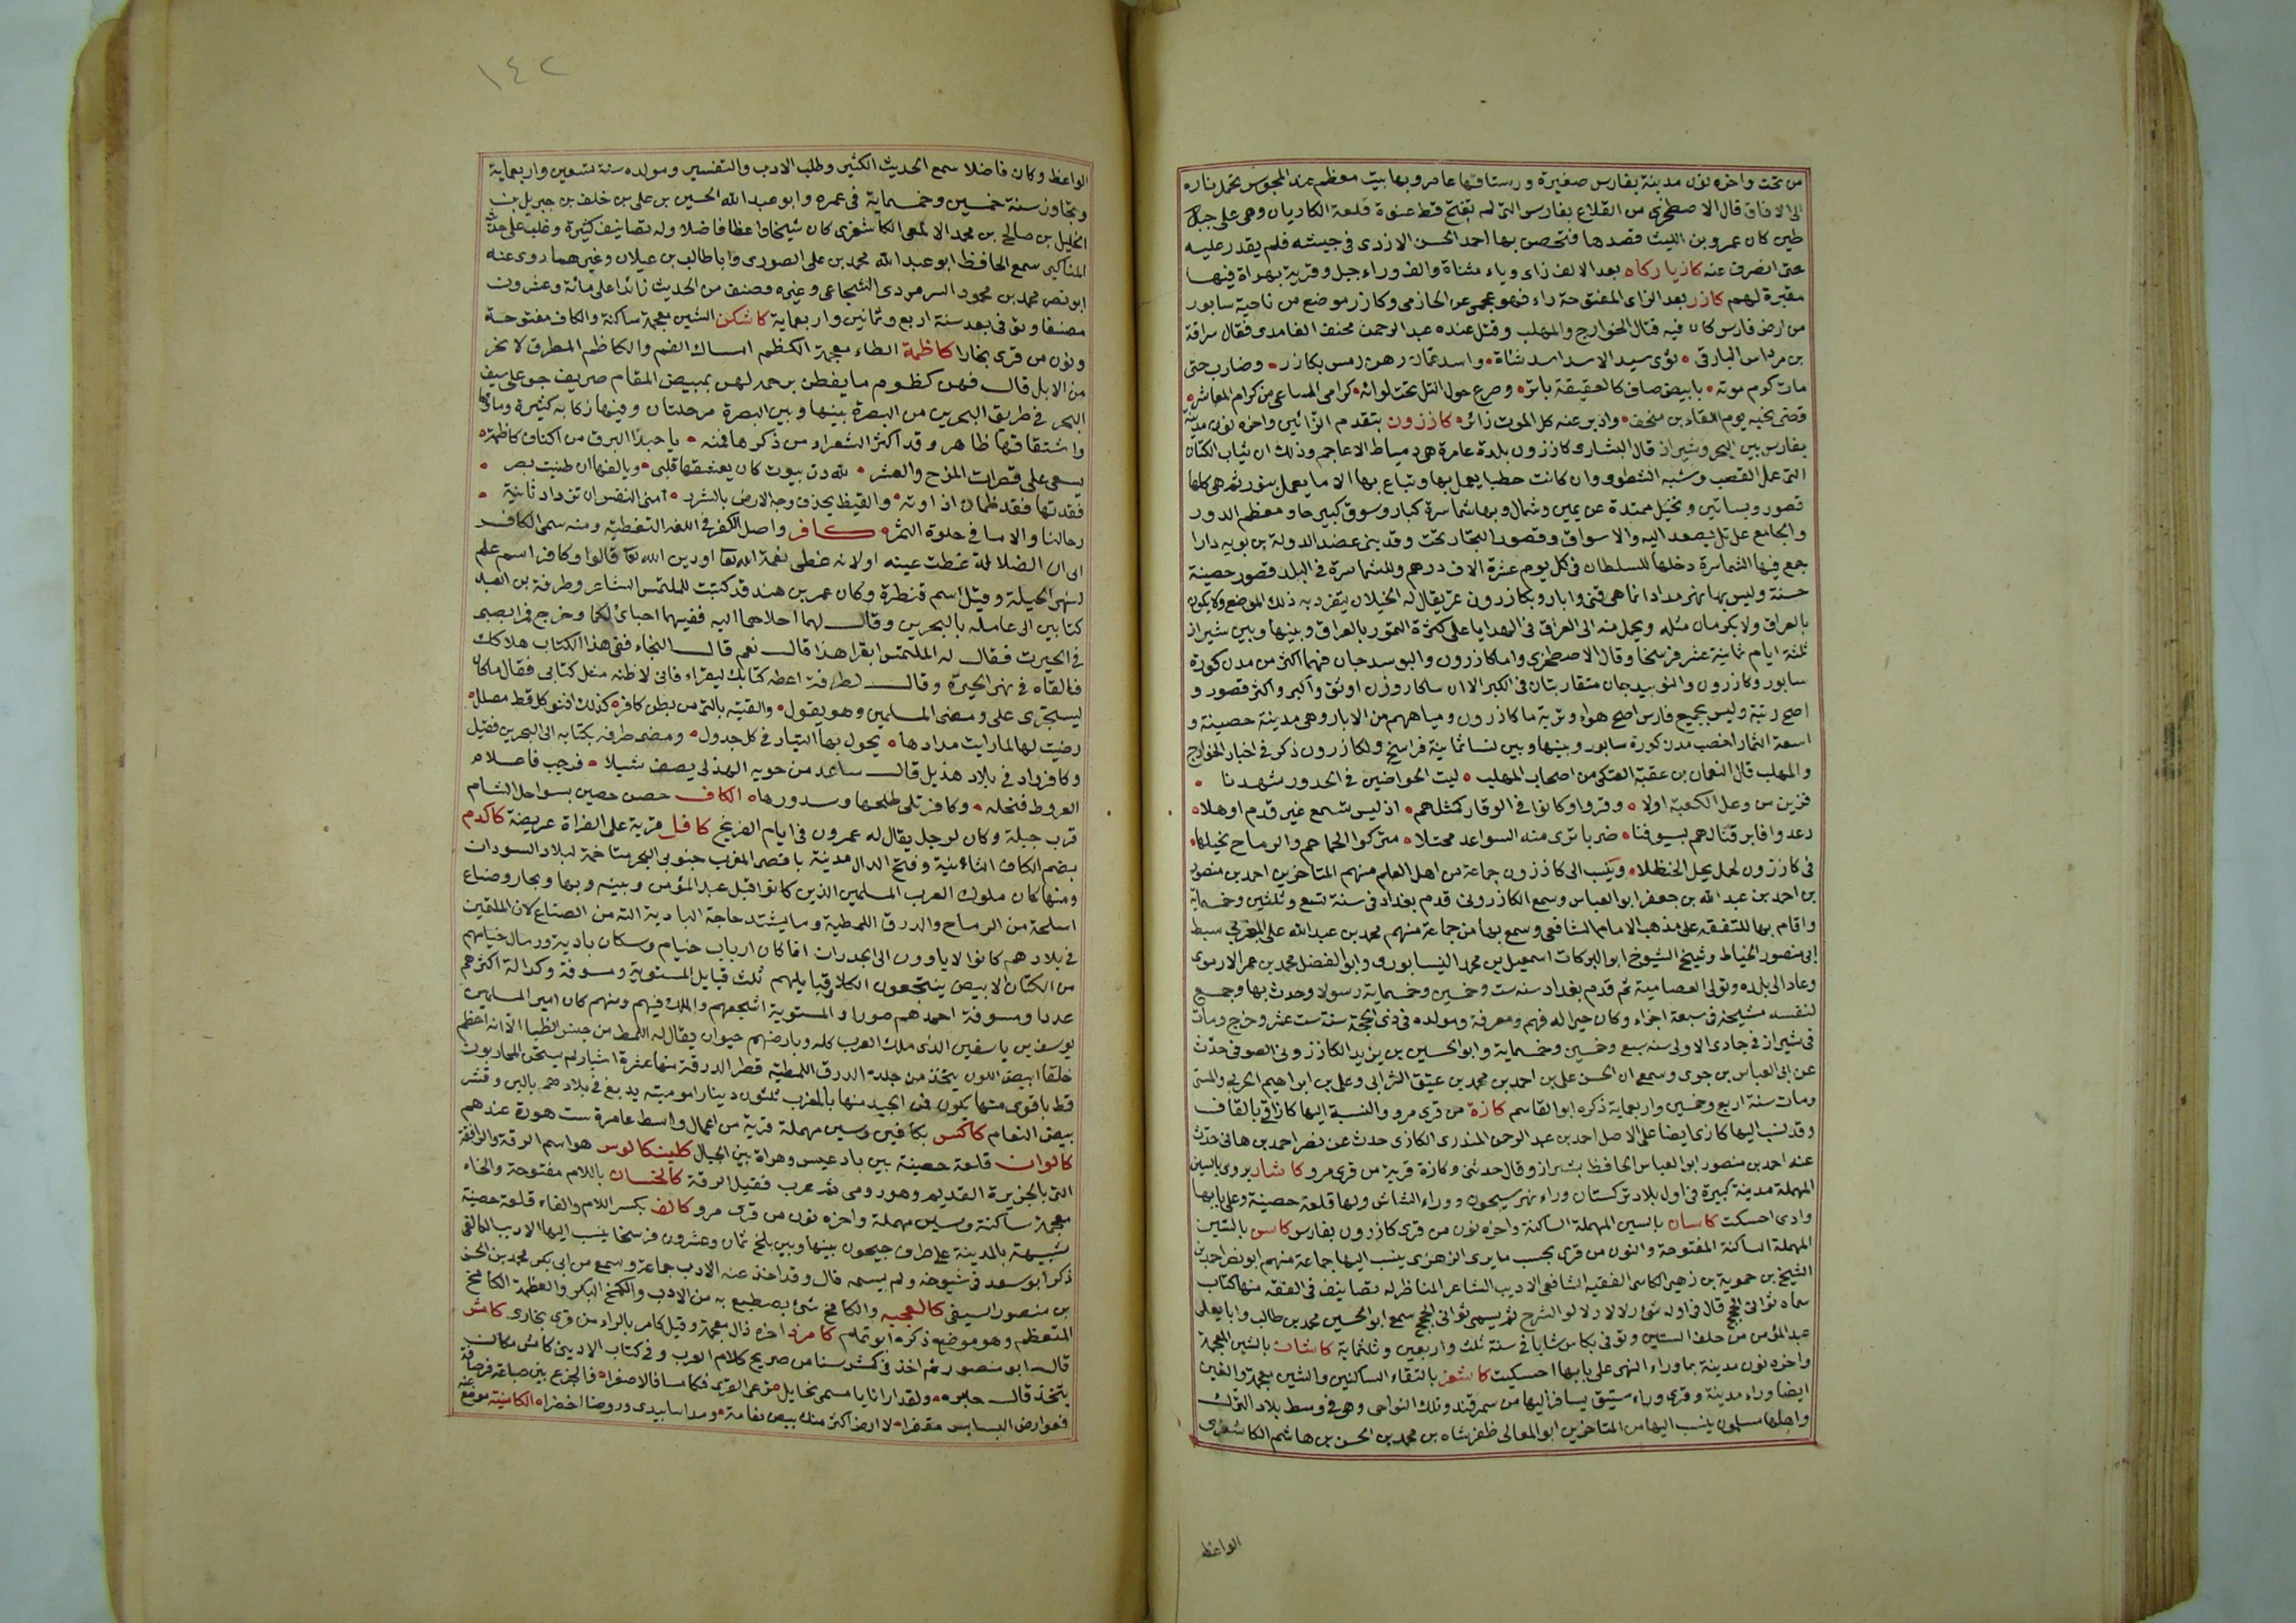 من تحت واخره نون مدينة بفارس صغيرة ورستاقها عامر وبها بيت معظم عند المجوس تحمل ناره
الى الافاق قال الاصطخرى من القلاع بفارس التى لم تفتح قط عنوة قلعة الكاريان وهى على جبل
طين كان عمرو بن الليث قصدها فتحصن بها احمد الحسن الازدى فى جيشه فلم يقدر عليه
حتى انصرف عنه كازياركاه بعد الالف زاى وياء مثناة والف وراء جبل وقرية بهراة فيها
مقبرة لهم كازر بعد الزاى المفتوحة راء فهو عجمى عن الحازمى وكازر موضع من ناحية سابور
من ارض فارس كان فيه قتال الخوارج والمهلب وقتل عنده عبد الرحمن مخنف الغامدى فقال سراقة
بن مرداس البارقى ثوى سيد الاسد اسد شناة واسد عمان رهن رمس بكازر وضارب حتى
مات كرم موته بابيض صافى كالعقيقة باتر وصرع حول التل تحت لوائه كرامى المساعى من كرام المعاشر
قضى نحبه يوم اللقاء بن مخنف وادبر عنه كل الموت زائره كازرون بتقدم الزائين واخره نون مدينة
بفارس بين البحر وشيراز قال البشارى كازرون بلدة عامرة هى دمياط الاعاجم وذلك ان ثياب الكتان
التى عمل القصب وشبه الشطوى وان كانت حطبا يعمل بها وتباع بها الا ما يعمل بتوز ثم هى كلها
قصور وبساتين ونخيل ممتدة عن يمين وشمال وبها سماسرة كبار وسوق كبير حاو ومعظم الدور
والجامع على تل يصعد اليه والاسواق وقصور التجار تحت وقد بنى عضد الدولة بن بويه دارا
جمع فيها السماسرة دخلها للسلطان فى كل يوم عشرة الاف درهم وللسماسرة فى البلد قصور حصينة
حسنة وليس بها نهر مداد انما هى قنى وابار وبكازرون تمر يقال له الخيلان يتفرد به ذلك الموضع ولا يكون
بالعراق ولا بكرمان مثله ويحمل منه الى العراق فى الهدايا على كثرة التمور بالعراق وبينها وبين شيراز
ثلثة ايام ثمانية عشر فرسخا وقال الاصطخرى واما كازرون والنوبندجان فهما اكثر من مدن كورة
سابور وكازرون والنوبندجان متقاربتان فى الكبر الا ان بناء كازرون اوثق واكبر واكثر قصور و
اصح تربة وليس بجميع فارس اصح هواء وتربة ما كازرون ومياههم من الابار وهى مدينة حصينة و
اسعة الثمار اخصب مدن كورة سابور وبينها وبين نسا ثمانية فراسخ ولكازرون ذكر فى اخبار الخوارج
والمهلب قال النعمان بن عقبة العتكى من اصحاب المهلب ليت الحواضين فى الخدور شهدنا
فى كازرون لحمل يحل الحنظلا وينسب الى كازرون جماعة من اهل العلم منهم المتاخرين احمد بن منصور
بن احمد بن عبد الله بن جعفر ابو العباس وسمع الكازرونى قدم بغداد فى سنة تسع وثلثين وخمسماية
واقام بها للتفقه على مذهب الامام الشافعى وسمع بها من جماعة منهم محمد بن عبد الله على المقرى سبط
ابى منصور الخياط وشيخ الشيوخ ابو البركات اسمعيل بن محمد النيسابورى وابو الفضل محمد بن عمر الارموى
وعاد الى بلده وتولى العصامية ثم قدم بغداد سنه ست وخمسين وخمسماية رسولا وحدث بها وجمع
لنفسه مشيخة فى سبعة اجزاء وكان خيرا له فهم ومعرفة ومولده فى ذى الحجة سنة ست عشر وخرج ومات
فى شيراز فى جمادى الاولى سنه سبع وخمسين وخمسماية وابو الحسين بن يزيد الكازرونى الصوفى حدث
ومات سنة اربع وخمسين واربعماية ذكره ابو القاسم كازة من قرى مرو والنسبة اليها كازاقى بالقاف
وقد نسب اليها كازى ايضا على الاصل احمد بن عبد الرحمن المنذرى الكازى حدث عن نصر احمد بن هانى حدث
عنه احمد بن منصور ابو العباس الحافظ بشيراز وقال حدثنى وكازة قرية من قرى مرو كاشار يروى بالسين
المهملة مدينة كبيرة فى اول بلاد تركستان وراء نهر سيحون ووراء الشاش ولها قلعة حصينة وعلى بابها
وادى اخسكت كاسان بالسين المهملة الساكنة واخره نون من قرى كازرون بفارس كاسن بالسين
المهملة الساكنة المفتوحة والنون من قرى نخشب ما يرى الزهرى ينسب اليها جماعة منهم ابو نصر احمد بن
الشيخ بن حموية بن زهير الكاسنى الفقيه الشافعى الاديب الشاعر المناظر له تصانيف فى الفقه منها كتاب
عبد المؤمن من خلف الستين وتوفى بكاسن شابا فى سنة ثلث واربعين وثلثماية كاشان بالشين المعجمة
واخره نون مدينة بما وراء النهر على بابها اخسيكت كاشغر بالتقاء الساكنين والشين معجمة والغين
ايضا وراء مدينة وقرى ورستاق يسافر اليها من سمرقند وتلك النواحى وهى فى وسط بلاد الترك
واهلها مسلمون ينسب اليها من المتاخرين ابو المعالى طغرلشاه بن محمد بن الحسن بن هاشم الكاشغرى
الواعظ
١٤٢
الواعظ وكان فاضلا سمع الحديث الكثير وطلب الادب والتفسير ومولده سنة تسعين واربعماية
وتجاوز سنة خمسين وخمسماية فى عمره وابو عبد الله الحسين بن على بن خلف بن جبريل بن
الخليل بن صالح بن محمد الالمعى الكاشغرى كان شيخا واعظا فاضلا وله تصانيف كثيرة وغلب على حديثه
المناكير سمع الحافظ ابو عبد الله محمد بن على الصورى وابا طالب بن غيلان وغيرهما روى عنه
ابو نصر محمد بن محمود السرمردى الشجاعى وغيره وصنف من الحديث زائدا على مائة وعشرون
مصنفا وتوفى بعد سنة اربع وثمانين واربعماية كاشكن الشين معجمة ساكنة والكاف مفتوحة
ونون من قرى بخارا كاظمة الظاء معجمة الكظم امساك الفم والكاظم المطرق لا يجتر
من الابل قال فهن كظوم ما يفضن بجرة لهن بمبيض المقام صريف جو على سيف
البحر فى طريق البحرين من البصرة بينها وبين البصرة مرحلتان وفيها ركايا كثيرة وماؤها
واشتقاقها ظاهر وقد اكثر الشعراء من ذكرها فمنه يا حبذا البرق من اكناف كاظمة
يسعى على قصرات المرخ والعشر لله در بيوت كان يعشقها قلبى ويالفها ان طيبت بصر
فقدتها فقد ظمان اداوته والقيظ يحذف وجه الارض بالشرر امنى النفس ان تزداد ثانية
رحالنا والاما فى حلوة الثمر كافر واصل الكفر فى اللغة التغطية ومنه سمى الكافر
الى ان الضلالة غطت عينه او لانه غطى نعمة الله تعا او دين الله تعا قالوا وكافر اسم علم
لنهر الحيلة وقيل اسم قنطرة وكان عمر بن هند قد كتبت للملتمس الشاعر وطرفة بن العبد
كتابين الى عامله بالبحرين وقال لهما احلاهما اليه ففيهما احبائى لكما وخرج فمرا بصبى
فى الحيرت فقال له الملتمس اتقرا هذا قال نعم قال النجاء ففى هذا الكتاب هلاكك
فالقاه فى نهر الحيرة وقال لطرفة اعطه كتابك ليقراء فانى لاظنه مثل كتابى فقال ما كان
ليستجرى على ومضى المسلمين وهو يقول والقيته بالثنى من بطن كافر كذلك اقنى كل قط مضلل
رضيت لها لما رايت مدادها يجول بها التيار فى كل جدول ومضى طرفة بكتابه الى البحرين فقتل
وكافر واد فى بلاد هذيل قال ساعد من جويه الهذلى يصف شيلا فرحب فاعلام
الفروط فنخله وكافر تلى طلحها وسدورها الكاف حصن حصين بسواحل الشام
قرب جبلة وكان لرجل يقال له عمرون فى ايام الفرنج كافل قرية على الفراة عريضة كاكدم
بضم الكاف الثانية وفتح الدال مدينة باقصى المغرب جنوبى البحر متاخمة لبلاد السودان
ومنها كان ملوك الغرب المسلمين الذين كانوا قبل عبد المؤمن وبينه وبها وتجار وصناع
اسلحة من الرماح والدرق اللمطية وما يشتد حاجة البادية اليه من الصناع لان الملثمين
فى بلادهم كانوا لا ياوون الى الجدران انما كان ارباب خيام وسكان بادية ورمال خيامهم
من الكتان الابيض ينتجعون الكلا وقبايلهم ثلث قبايل المستوية ومسوفة وكدالة اكثرهم
عددا ومسوفة احمدهم صورا والمستوية اشجعهم والملك فيهم ومنهم كان امير المسلمين
يوسف بن ياشفين الذى ملك الغرب كله وبارضهم حيوان يقال له اللمط من جنس الظبا الا انه اعظم
خلقا ابيض اللون يتخذ من جلده الدرق اللمطية قطر الدرقة منها عشرة اشبار لم يستجن المحاربون
قط باقوى منها يكون فى الجيد منها بالمغرب ثلثون دينارا مومنيه يدبغ فى بلادهم بالبن وقشر
بيض النعام كاكس بكافين وسين مهملة قرية من اعمال واسط عامرة مشهورة عندهم
كالوان قلعة حصينة بين بادغيس وهراة بين الجبال كلينكالوس هو اسم الرقة والرافقة
التى بالجزيرة القديم وهو رومى ثم عرب فقيل الرقة كالخسان باللام مفتوحة والخاء
معجمة ساكنة وسين مهملة واخره نون من قرى مرو كالف بكسر اللام والفاء قلعة حصينة
شبيهة بالمدينة على طرف جيحون بينها وبين بلخ ثمان وعشرون فرسخا ينسب اليها الاديب الكالفى
ذكر ابو سعد فى شيوخه ولم يسمه قال وقد اخذ عنه الادب جماعة وسمع من ابى بكر محمد بن الحسن
بن منصور اسيفى كالمجيه والكامخ شئ يصطبغ به من الادب والكمخ الكبر والعظمة الكامخ
المتعظم وهو موضع ذكره ابو تمام كامرد اخره ذال معجمة وقيل كامر بالراء من قرى بخارى كامس
فعوارض البسابس مقفرا لا ارض اكثر منك بيض نعامة ومدانبا تبدى وروضا اخضرا الكامنية موضع